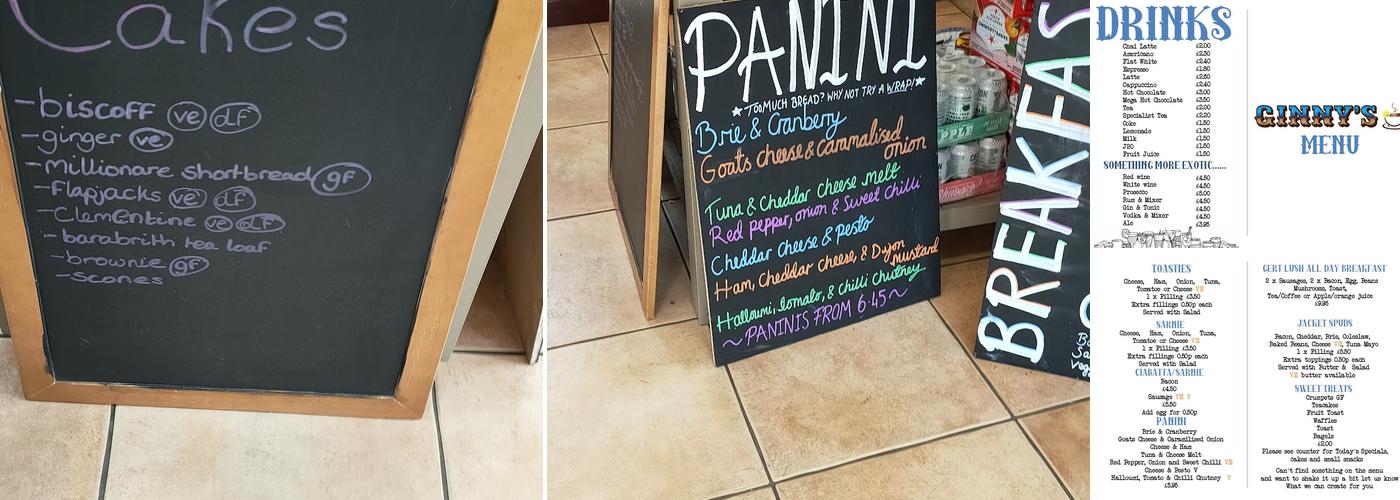 Cakes
-biscoff ve df
-ginger ve
-Millionare shortbread gf
-flapjacks ve df
-Clementine ve df
-barabrith tea loaf
-brownie gf
-scones
PANINI
★TOO MUCH BREAD? WHY NOT TRY A WRAP!★
Brie & Cranberry
Goats cheese & Carmalised
onion
Tuna & Cheddar cheese melt
Red Pepper, onion & Sweet Chilli
Cheddar Cheese & Pesto
Ham, Cheddar cheese, & Dyon
mustard
Halloumi, tomato, & chilli Chutney
~PANINIS FROM 6·45~
BREAKFAS
DRINKS
Chai Latte £2.00
Americano £2.30
Flat White £2.40
Espresso £1.80
Latte £2.60
Cappuccino £2.40
Hot Chocolate £3.00
Mega Hot Chocolate £3.50
Tea £2.00
Specialist Tea £2.20
Coke £1.50
Lemonade £1.50
Milk £1.50
J2O £1.50
Fruit Juice £1.50
SOMETHING MORE EXOTIC......
Red wine £4.50
White wine £4.50
Prosecco £5.00
Rum & Mixer £4.50
Gin & Tonic £4.50
Vodka & Mixer £4.50
Ale £3.95
GINNY'S
MENU
TOASTIES
Cheese, Ham, Onion, Tuna,
Tomatoe or Cheese VE
1 x Filling £3.50
Extra fillings 0.50p each
Served with Salad
SARNIE
Cheese, Ham, Onion, Tuna,
Tomatoe or Cheese VE
1 x Filling £3.50
Extra fillings 0.50p each
Served with Salad
CIABATTA/SARNIE
Bacon
£4.50
Sausage VE V
£5.50
Add egg for 0.50p
PANINI
Brie & Cranberry
Goats Cheese & Caramilised Onion
Cheese & Ham
Tuna & Cheese Melt
Red Pepper, Onion and Sweet Chilli VE
Cheese & Pesto V
Halloumi, Tomato & Chilli Chutney V
£5.95
GERT LUSH ALL DAY BREAKFAST
2 x Sausages, 2 x Bacon, Egg, Beans
Mushrooms, Toast,
Tea/Coffee or Apple/orange juice
£9.95
JACKET SPUDS
Bacon, Cheddar, Brie, Coleslaw,
Baked Beans, Cheese VE, Tuna Mayo
1 x Filling £5.50
Extra toppings 0.50p each
Served with Butter & Salad
VE butter available
SWEET TREATS
Crumpets GF
Teacakes
Fruit Toast
Waffles
Toast
Bagels
£2.00
Please see counter for Today's Specials,
cakes and small snacks
Can't find something on the menu
and want to shake it up a bit let us know
What we can create for you